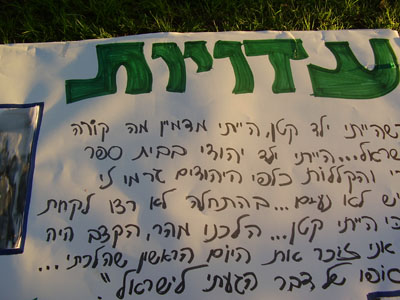 עדויות
כשהייתי ילד קטן, הייתי מדמיין מה קורה
ישראל... הייתי ילד יהודי בבית ספר
והקללות כלפי היהודים גרמו לי
לא נעים... בהתחלה לא רצו לקחת
הייתי קטן... הלכנו מהר, הקצב היה
אני זוכר את היום הראשון שהלכתי...
סופו של דבר הגעתי לישראל".